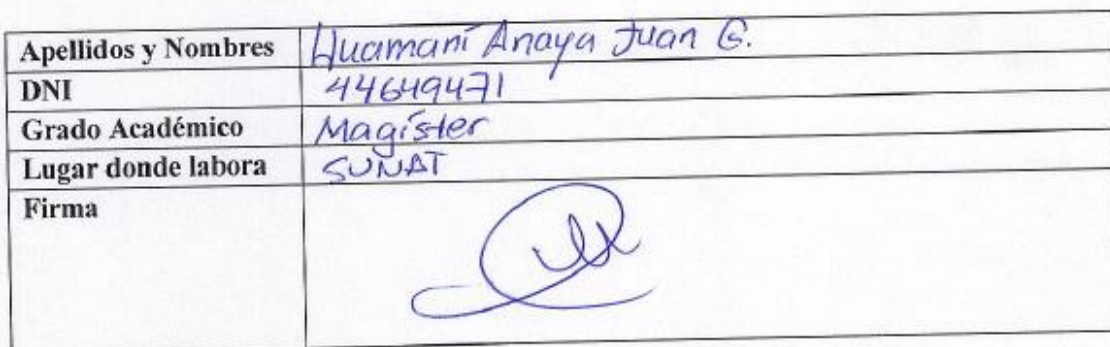 Apellidos y Nombres Huamaní Anaya Juan G.
DNI 44649471
Grado Académico Magíster
Lugar donde labora SUNAT
Firma